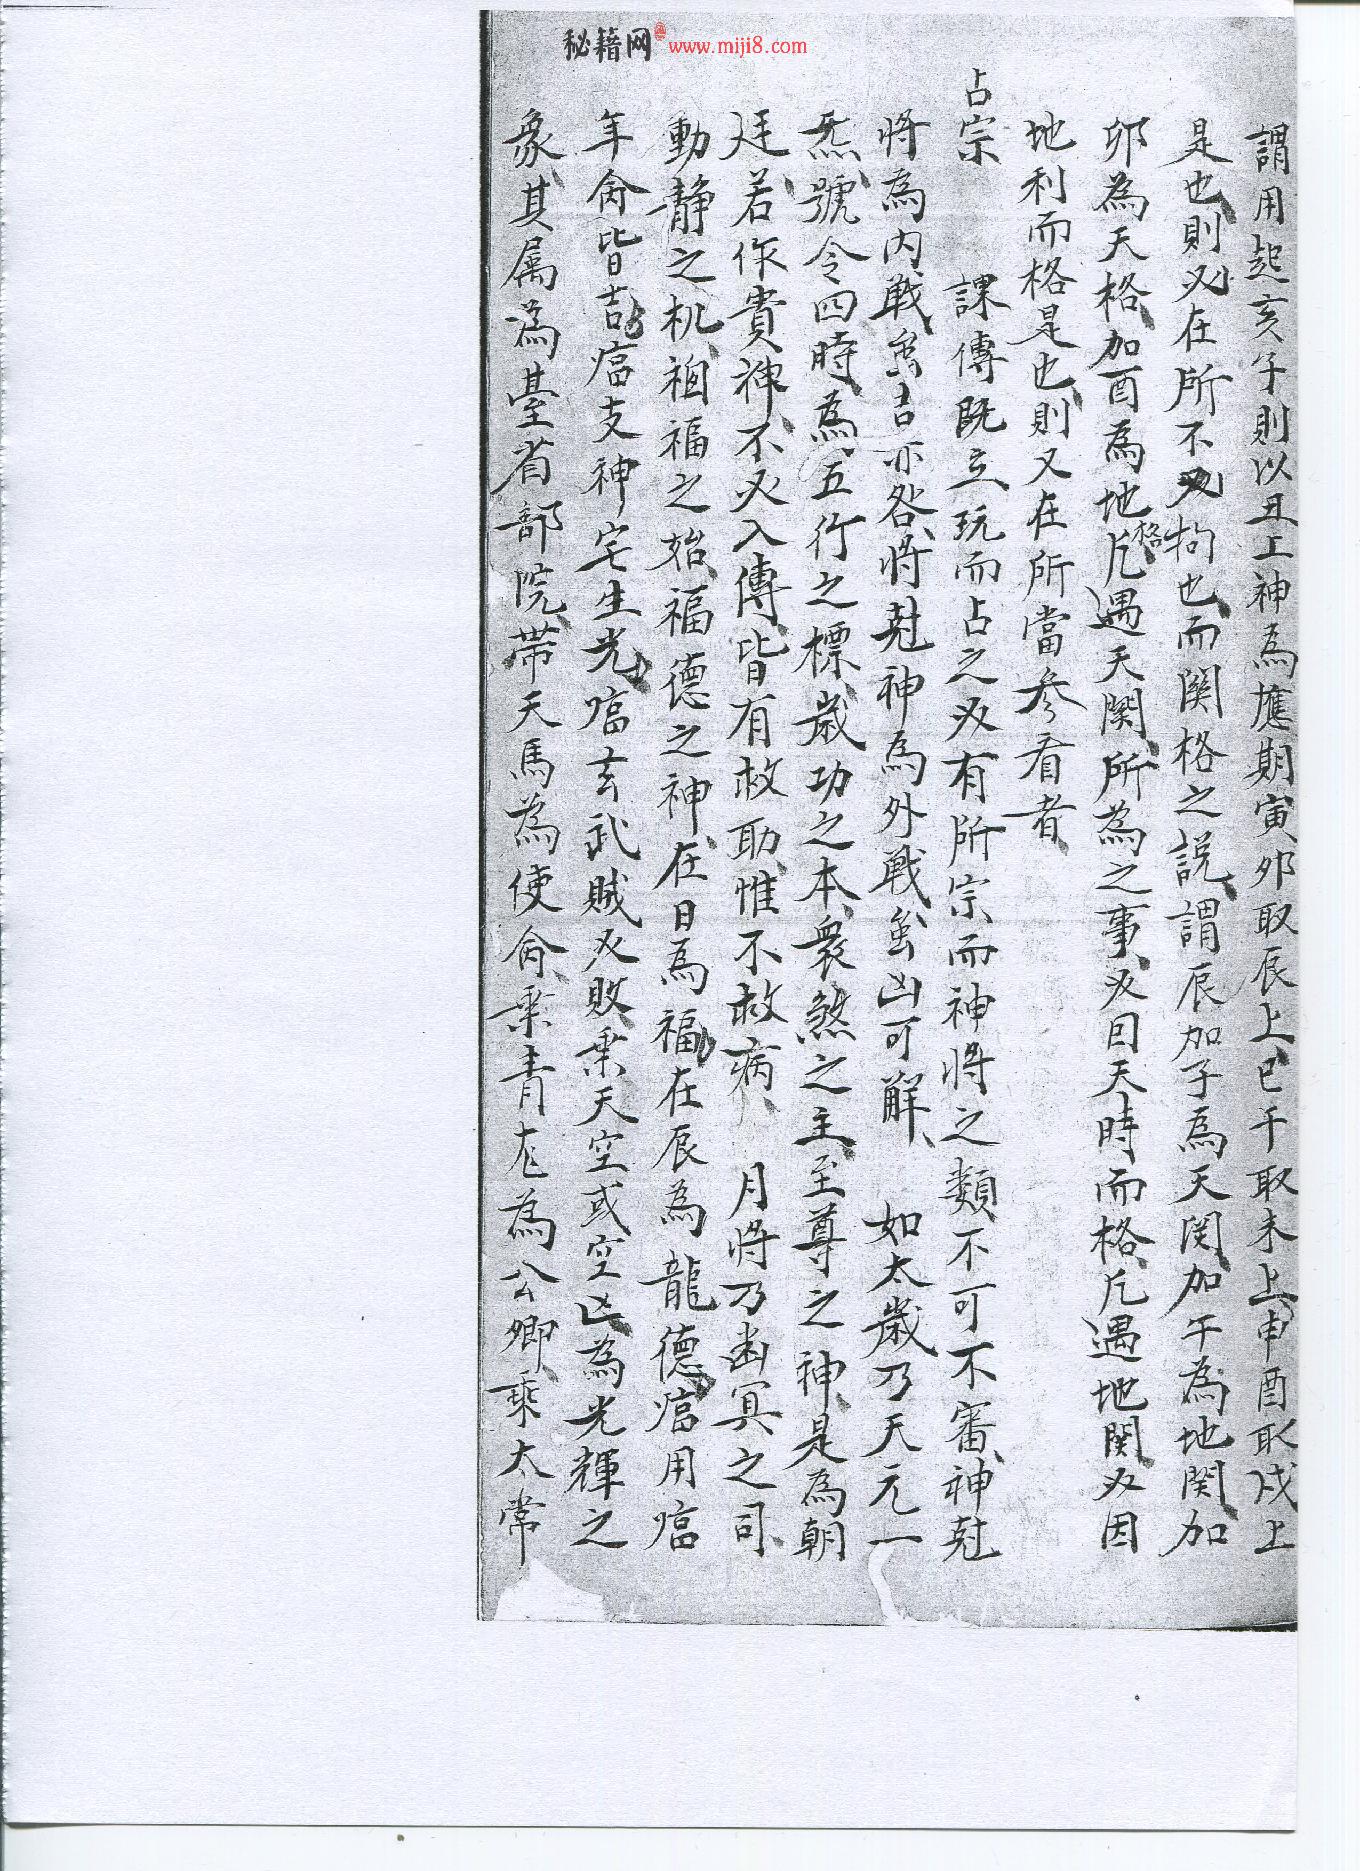 秘籍网 www.miji8.com
謂用起亥子則以丑上神為應期寅卯取辰上巳午取未上申酉取戌上
是也則必在所不必拘也而関格之説謂辰加子為天関加午為地関加
卯為天格加酉為地格凡遇天関所為之事必因天時而格凡遇地関必因
地利而格是也則又在所當參看者
占宗 課傳既立玩而占之必有所宗而神將之類不可不審神尅
將為内戰虽吉亦咎將尅神為外戰虽凶可解 如太歲乃天元一
炁號令四時為五行之標歲功之本衆煞之主至尊之神是為朝
廷若作貴神不必入傳皆有救助惟不救病 月將乃幽冥之司
動静之机禍福之始福德之神在日為福在辰為龍德當用當
年命皆吉當支神宅生光當玄武賊必敗乘天空或空亡為光輝之
象其属為臺省部院帯天馬為使命乘青龙為公卿乘太常